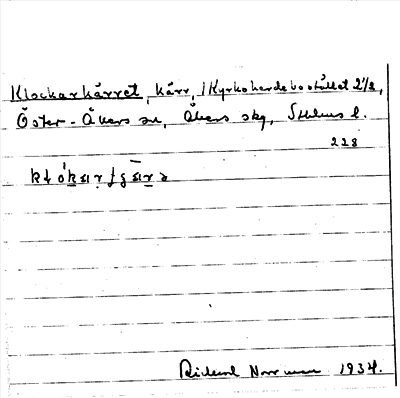 Klockarkärret, kärr, i Kyrkoherdebostället 2 1/2,
Öster-Åkers sn, Åkers skg, Sthlms l.
228
Rickard Norrman 1934.